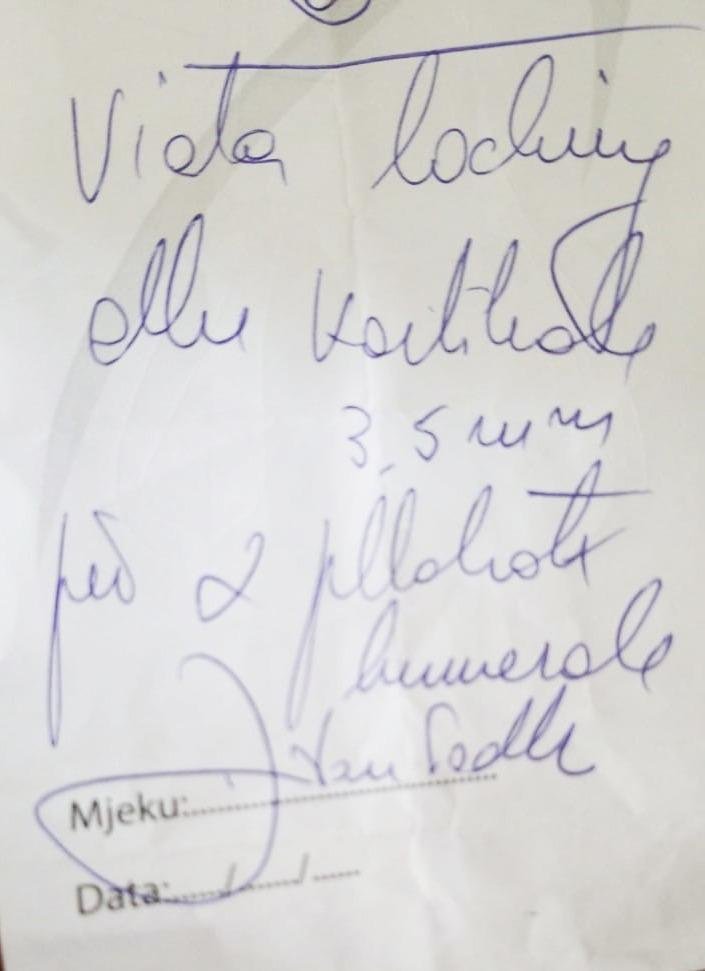 Vida locking
dhe kortikale
3.5 mm
për 2 pllakat
humerale
Mjeku:
Data:...../....../......